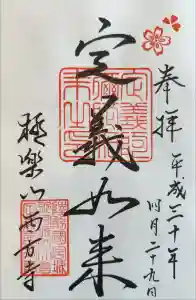 奉拝
平成三十年
四月二十九日
定義如来
極楽山西方寺